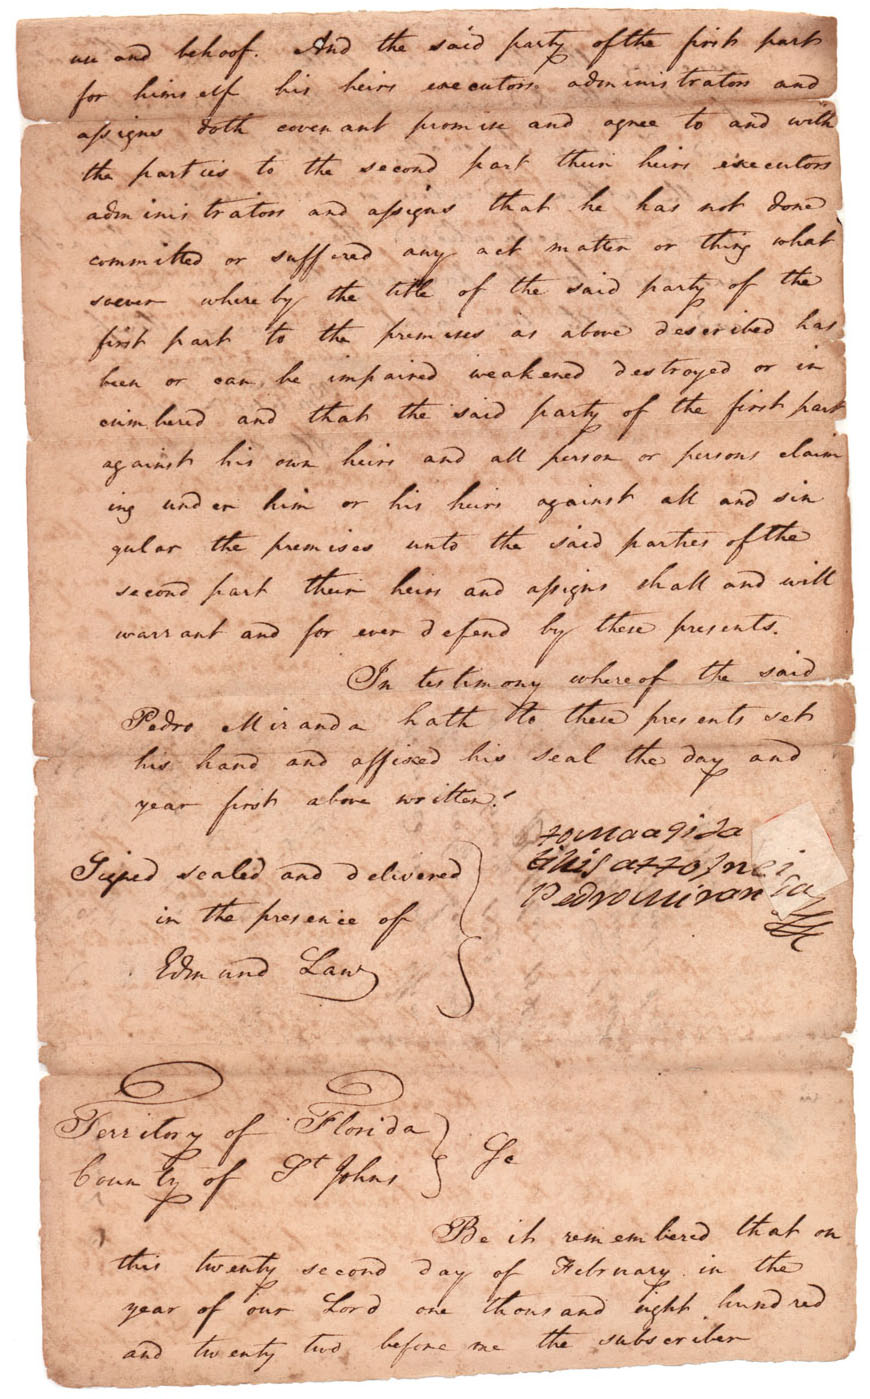 use and behoof. And the said party of the first part
for himself his heirs executors administrators and
assigns doth covenant promise and agree to and with
the parties to the second part their heirs executors
administrators and assigns that he has not done
committed or suffered any act matter or thing what
soever whereby the title of the said party of the
first part to the premises as above described has
been or can be impaired weakened destroyed or in
cumbered and that the said party of the first part
against his own heirs and all person or persons claim
ing under him or his heirs against all and sin
gular the premises unto the said parties of the
second part their heirs and assigns shall and will
warrant and for ever defend by these presents.
In testimony whereof the said
Pedro Miranda hath to these presents set
his hand and affixed his seal the day and
year first above written.
his attornei
Pedro Miranda
Signed sealed and delivered
in the presence of
Edmund Law
Territory of Florida
County of St Johns
Be it remembered that on
this twenty second day of February in the
year of our Lord one thousand eight hundred
and twenty two before me the subscriber